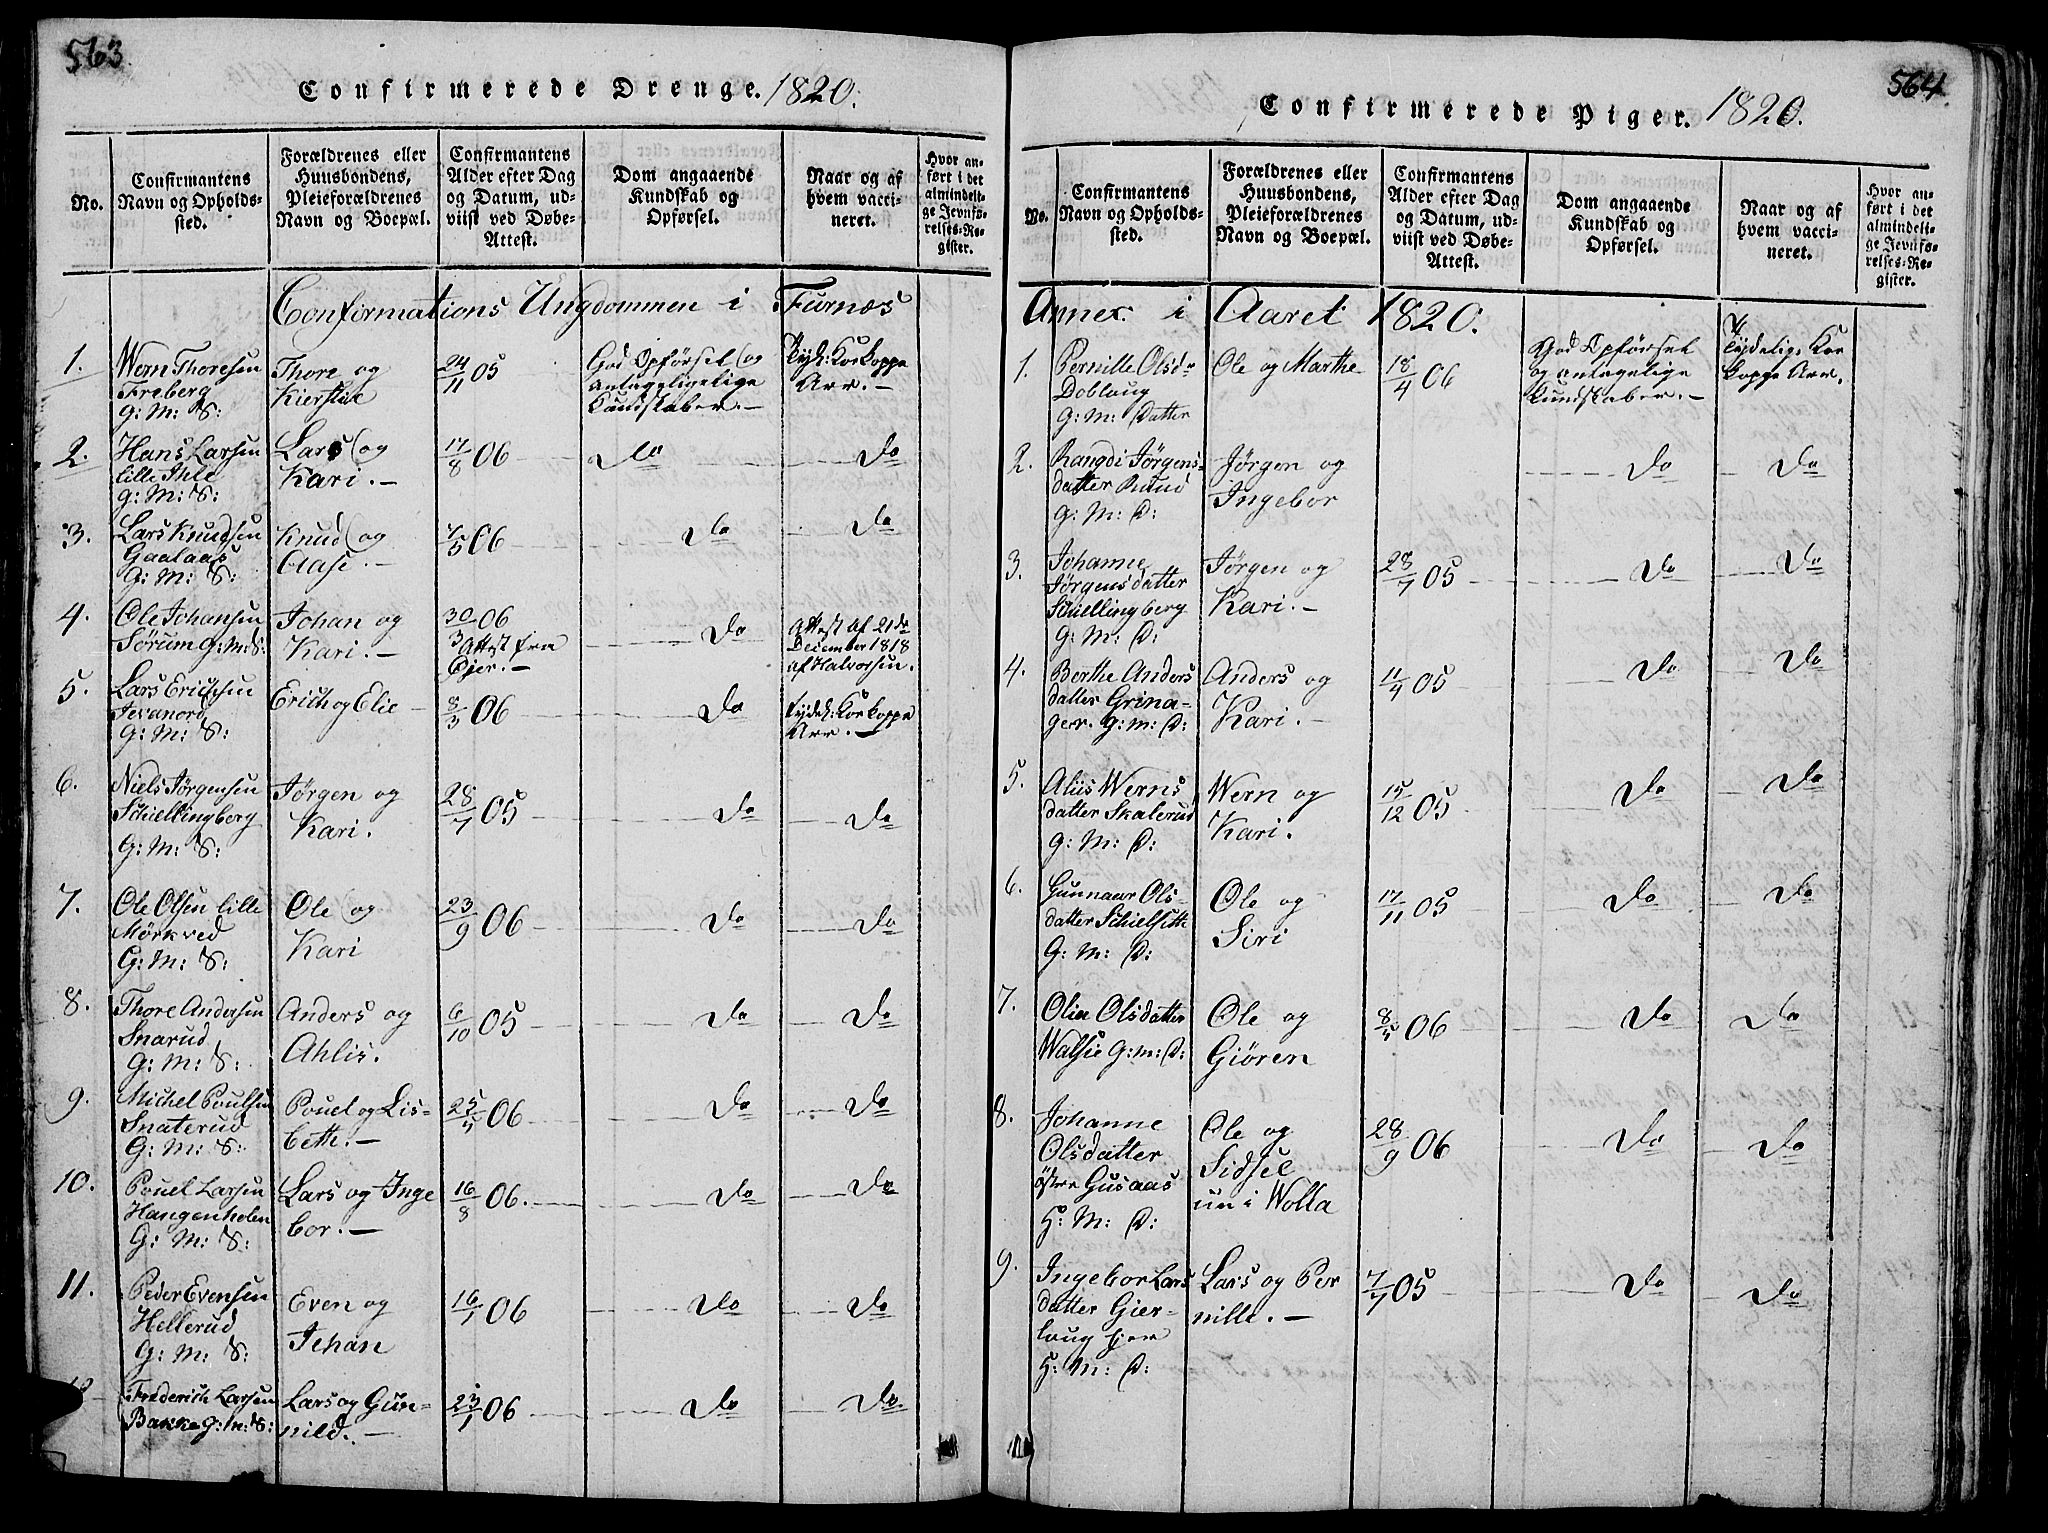 563.
Confirmerede Drenge. 1820.
No.
Confirmantens
Navn og Opholds-
sted.
Forældrenes eller
Huusbondens,
Pleieforældrenes
Navn og Boepæl.
Confirmantens
Alder efter Dag
og Datum, ud-
viist ved Døbe-
Attest.
Dom angaaende
Kundskab og
Opførsel.
Naar og af
hvem vacci-
neret.
Hvor an-
ført i det
almindeli-
ge Jevnfø-
relses-Re-
gister.
Confirmations Ungdommen i Furnæs
1.
Wern Thoresen
Freberg
G: M: S:
Thore og
Kierstie
24/11 05
God Opførsel og
antageligelige
Kundskaber. —
Tydel: Kokoppe
Arr. —
2.
Hans Larsen
lille Ihle
G: M: S:
Lars og
Kari. —
17/8 06
Do
Do
3.
Lars Knudsen
Gaalaas
G: M: S:
Knud og
Aase. —
7/5 06
Do
Do
4.
Ole Johansen
Sørum G: M: S:
Johan og
Kari. —
30/3 06
Attest fra
Øier. —
Do
Attest af 21de
December 1818
af Halvorsen.
5.
Lars Erichsen
Jevanord
G: M: S:
Erich og Elie
8/3 06
Do
Tydel: Kokoppe
Arr. —
6.
Niels Jørgensen
Schiellingberg
G: M: S:
Jørgen og
Kari.
28/7 05
Do
Do
7.
Ole Olsen lille
Mørkved
G: M: S:
Ole og
Kari
23/9 06
Do
Do
8.
Thore Andersen
Snarud
G: M: S:
Anders og
Ahlis.
6/10 05
Do
Do
9.
Michel Poulsen
Snaterud
G: M: S:
Pouel og Lis-
bette. —
25/5 06
Do
Do
10.
Pouel Larsen
Hangenholen
G: M: S:
Lars og Inge
bor. —
16/8 06.
Do
Do
11.
Peder Evensen
Hellerud
G: M: S:
Even og
Jehan
16/1 06
Do
Do
Frederich Larsen
Bakke G: M: S:
Lars og Gun-
nild. —
23/1 06
Do
Do.
564.
Confirmerede Piger. 1820.
No.
Confirmantens
Navn og Opholds-
sted.
Forældrenes eller
Huusbondens,
Pleieforældrenes
Navn og Boepæl.
Confirmantens
Alder efter Dag
og Datum, ud-
viist ved Døbe-
Attest.
Dom angaaende
Kundskab og
Opførsel.
Naar og af
hvem vacci-
neret.
Hvor an-
ført i det
almindeli-
ge Jevnfø-
relses-Re-
gister.
Annex i Aaret 1820.
1.
Pernille Olsd
Dobloug
G: M: Datter
Ole og Marthe
18/4 06
God Opførsel
og antagelige
Kundskaber. —
Tydelig Ko
koppe Arr.
2.
Rangdi Jørgens-
datter
G: M: D:
Jørgen og
Ingebor
Do
Do
3.
Johanne
Jørgensdatter
Schiellingberg
G: M: D:
Jørgen og
Kari. —
28/7 05
Do
Do
4.
Berthe Anders
datter Grina-
ger. G: M: D:
Anders og
Kari. —
11/4 05
Do
Do
5.
Aliis Werns
datter Skalerud
G: M: D:
Wern og
Kari.
15/12 05
Do
Do
6.
Gunnaur Ols-
datter Schielsitte
G: M: D:
Ole og
Siri
17/11 05
Do
Do
7.
Oline Olsdatter
Walsie G: M: D:
Ole og
Giøren
8/5 06
Do
Do
8.
Johanne
Olsdatter
østre Gusaas
H: M: D:
Ole og
Sidsel
un i Wolla
28/9 06
Do
Do
9.
Ingebor Lars
datter Gier-
loug
H: M: D:
Lars og Per
nille. —
7/7 05
Do
Do